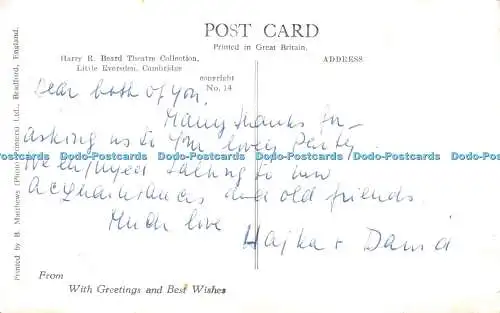 POST CARD
Printed in Great Britain.
Harry R. Beard Theatre Collection,
Little Eversden, Cambridge
ADDRESS
copyright
No. 14
Dear both of you,
Many thanks for
asking us to your lovely Party
Dodo-Postcards Dodo-Postcards Dodo-Postcards Dodo-Postcards Dodo-Postcards
We enjoyed talking to new
acquaintances and old friends.
Much love
Hajka + David
From
With Greetings and Best Wishes
Printed by B. Matthews (Photo Printers) Ltd., Bradford, England.